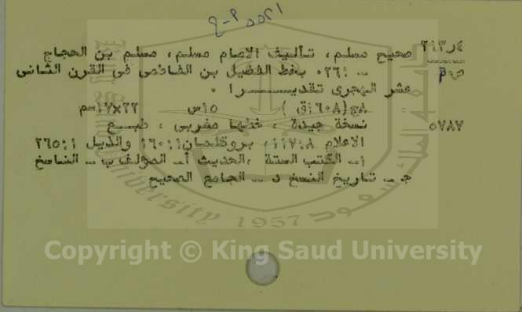 ٢١٣٫٤ صحيح مسلم، تأليف الامام مسلم، مسلم بن الحجاج
ص٠م - ٢٦١ه٠ بخط الفضيل بن الفاطمي في القرن الثاني
عشر الهجرى تقديـــــرا ٠
١٥س ١٧x٢٢سم
٥٧٨٧ نسخة جيدة ، خطها مغربي ، طبـــع
الاعلام ١١٧:٨، بروكلمان١٦٠:١ والذيل ٢٦٥:١
١ـ الكتب الستة ،الحديث أـ المؤلف ب ـ الناسخ
ج ـ تاريخ النسخ د ـ الجامع الصحيح
1957
Copyright © King Saud University